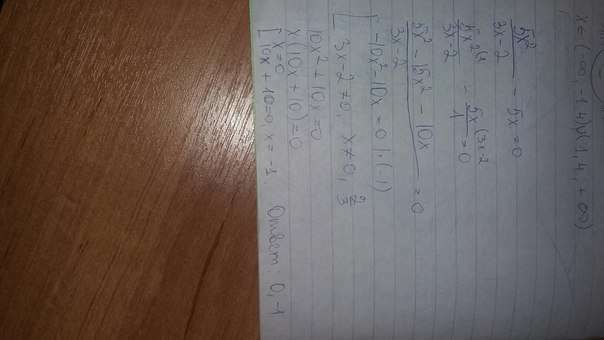 x = (-∞, -1,4)∪(1,4, +∞)
5x²/3x-2 - 5x = 0
5x²/3x-2 - 5x/1 (3x-2 = 0
5x² - 15x² - 10x/3x-2 = 0
[ -10x² - 10x = 0 | · (-1)
3x-2 ≠ 0, x ≠ 0, 2/3
10x² + 10x = 0
x (10x + 10) = 0
[ x = 0
10x + 10 = 0, x = -1 Ответ: 0, -1